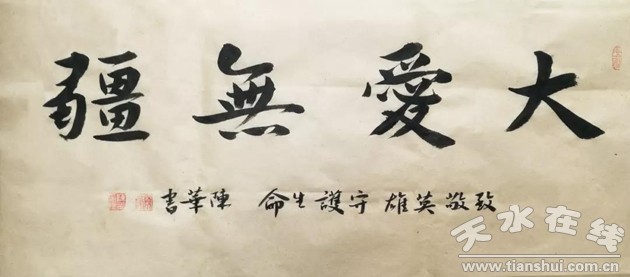 大愛無疆
致敬英雄 守護生命 陳華書
天水在线
www.tianshui.com.cn